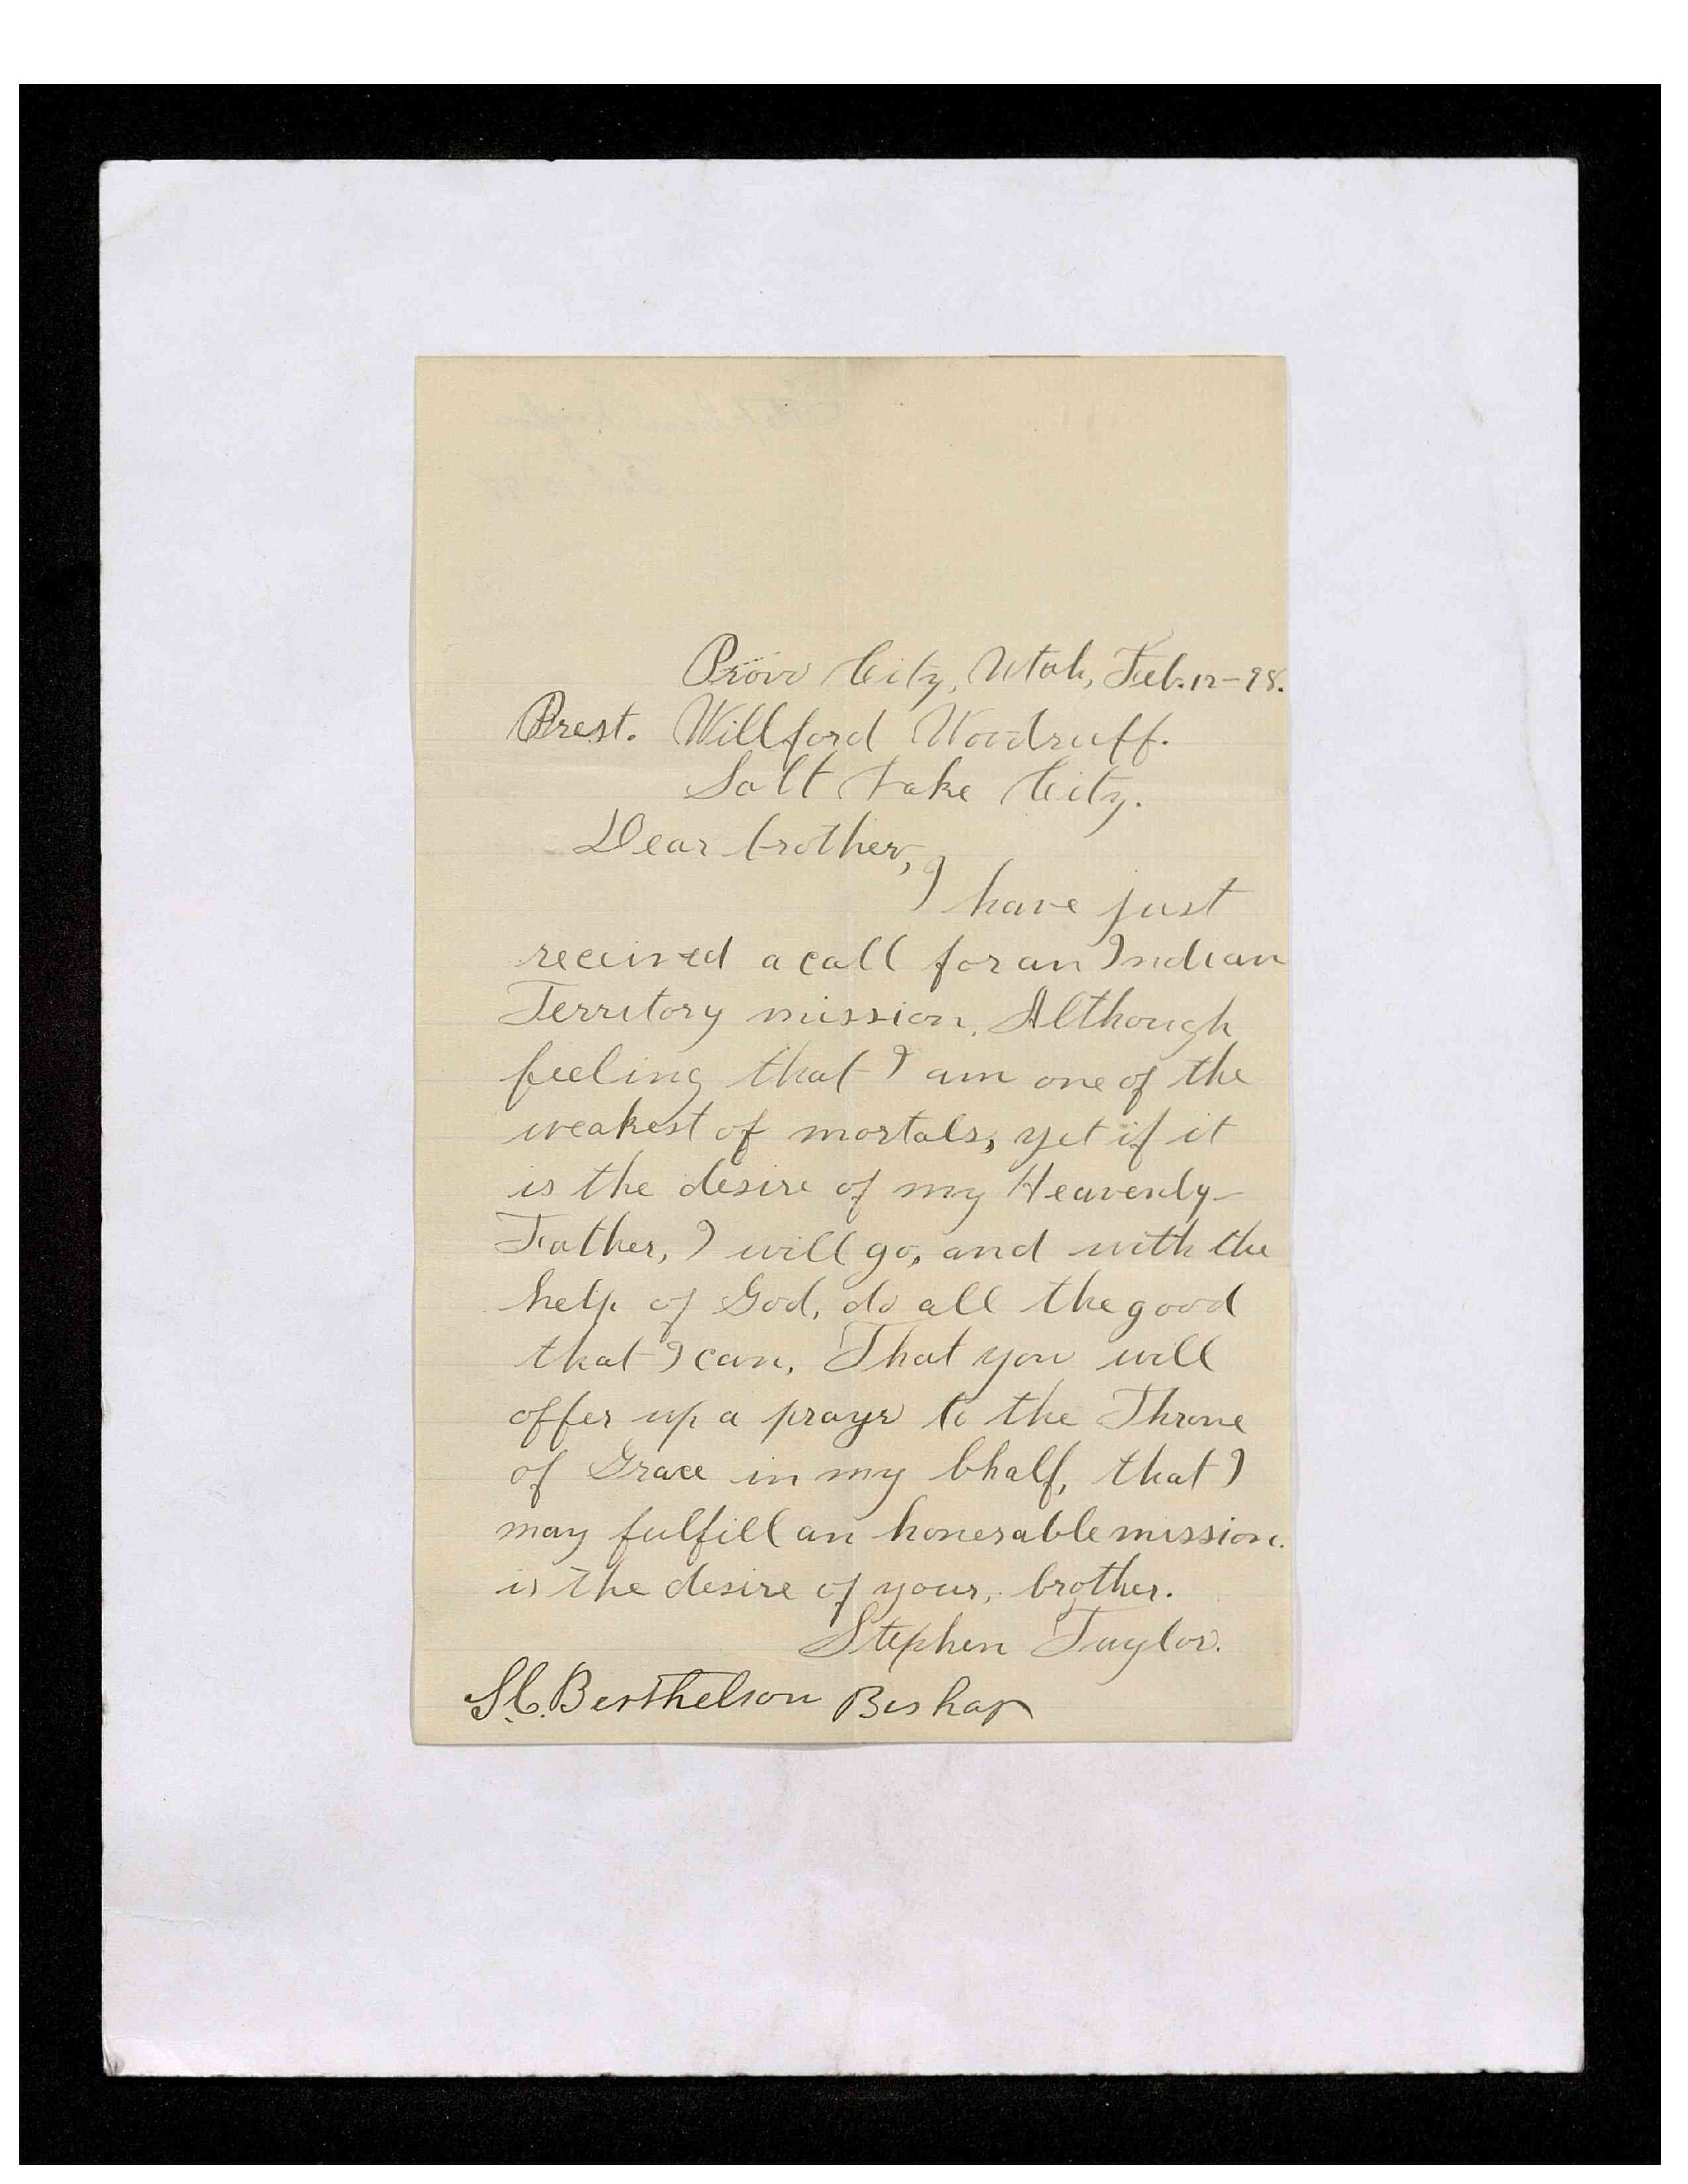 Provo City, Utah, Feb. 12-98.
Prest. Willford Woodruff.
Salt Lake City.
Dear brother,
I have just
received a call for an Indian
Territory mission. Although
feeling that I am one of the
weakest of mortals, yet if it
is the desire of my Heavenly
Father, I will go, and with the
help of God, do all the good
that I can. That you will
offer up a prayr to the Throne
of Grace in my bhalf, that I
may fulfill an honerable mission.
is the desire of your, brother.
Stephen Taylor.
S.C. Berthelson Bishop